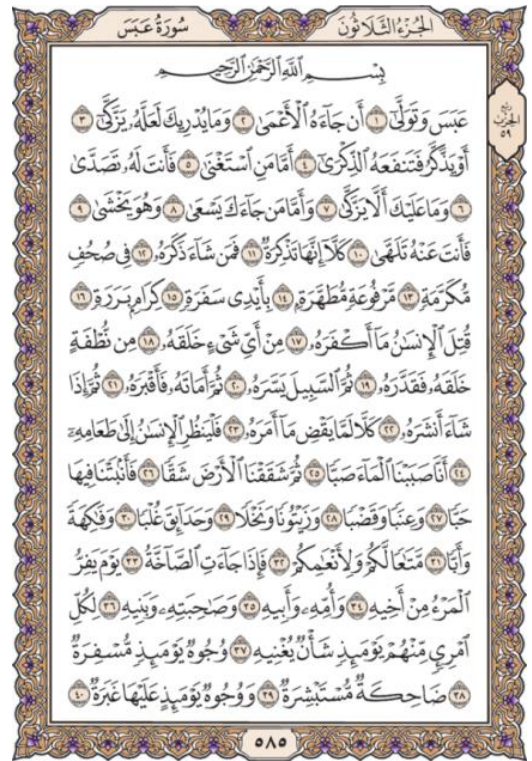 الجُزْءُ الثَّلَاثُونَ
سُورَةُ عَبَسَ
بِسْمِ ٱللَّهِ ٱلرَّحْمَٰنِ ٱلرَّحِيمِ
ربع
الحزب
٥٩
عَبَسَ وَتَوَلَّىٰٓ ١ أَن جَآءَهُ ٱلْأَعْمَىٰ ٢ وَمَا يُدْرِيكَ لَعَلَّهُۥ يَزَّكَّىٰٓ ٣
أَوْ يَذَّكَّرُ فَتَنفَعَهُ ٱلذِّكْرَىٰٓ ٤ أَمَّا مَنِ ٱسْتَغْنَىٰ ٥ فَأَنتَ لَهُۥ تَصَدَّىٰ
٦ وَمَا عَلَيْكَ أَلَّا يَزَّكَّىٰ ٧ وَأَمَّا مَن جَآءَكَ يَسْعَىٰ ٨ وَهُوَ يَخْشَىٰ ٩
فَأَنتَ عَنْهُ تَلَهَّىٰ ١٠ كَلَّآ إِنَّهَا تَذْكِرَةٌ ١١ فَمَن شَآءَ ذَكَرَهُۥ ١٢ فِى صُحُفٍ
مُّكَرَّمَةٍ ١٣ مَّرْفُوعَةٍ مُّطَهَّرَةٍۭ ١٤ بِأَيْدِى سَفَرَةٍ ١٥ كِرَامٍۭ بَرَرَةٍ ١٦
قُتِلَ ٱلْإِنسَٰنُ مَآ أَكْفَرَهُۥ ١٧ مِنْ أَىِّ شَىْءٍ خَلَقَهُۥ ١٨ مِن نُّطْفَةٍ
خَلَقَهُۥ فَقَدَّرَهُۥ ١٩ ثُمَّ ٱلسَّبِيلَ يَسَّرَهُۥ ٢٠ ثُمَّ أَمَاتَهُۥ فَأَقْبَرَهُۥ ٢١ ثُمَّ إِذَا
شَآءَ أَنشَرَهُۥ ٢٢ كَلَّا لَمَّا يَقْضِ مَآ أَمَرَهُۥ ٢٣ فَلْيَنظُرِ ٱلْإِنسَٰنُ إِلَىٰ طَعَامِهِۦٓ
٢٤ أَنَّا صَبَبْنَا ٱلْمَآءَ صَبًّا ٢٥ ثُمَّ شَقَقْنَا ٱلْأَرْضَ شَقًّا ٢٦ فَأَنۢبَتْنَا فِيهَا
حَبًّا ٢٧ وَعِنَبًا وَقَضْبًا ٢٨ وَزَيْتُونًا وَنَخْلًا ٢٩ وَحَدَآئِقَ غُلْبًا ٣٠ وَفَٰكِهَةً
وَأَبًّا ٣١ مَّتَٰعًا لَّكُمْ وَلِأَنْعَٰمِكُمْ ٣٢ فَإِذَا جَآءَتِ ٱلصَّآخَّةُ ٣٣ يَوْمَ يَفِرُّ
ٱلْمَرْءُ مِنْ أَخِيهِ ٣٤ وَأُمِّهِۦ وَأَبِيهِ ٣٥ وَصَٰحِبَتِهِۦ وَبَنِيهِ ٣٦ لِكُلِّ
ٱمْرِئٍ مِّنْهُمْ يَوْمَئِذٍ شَأْنٌ يُغْنِيهِ ٣٧ وُجُوهٌ يَوْمَئِذٍ مُّسْفِرَةٌ
٣٨ ضَاحِكَةٌ مُّسْتَبْشِرَةٌ ٣٩ وَوُجُوهٌ يَوْمَئِذٍ عَلَيْهَا غَبَرَةٌ ٤٠
٥٨٥